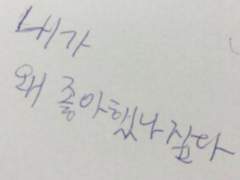 내가
왜 좋아했나 싶다